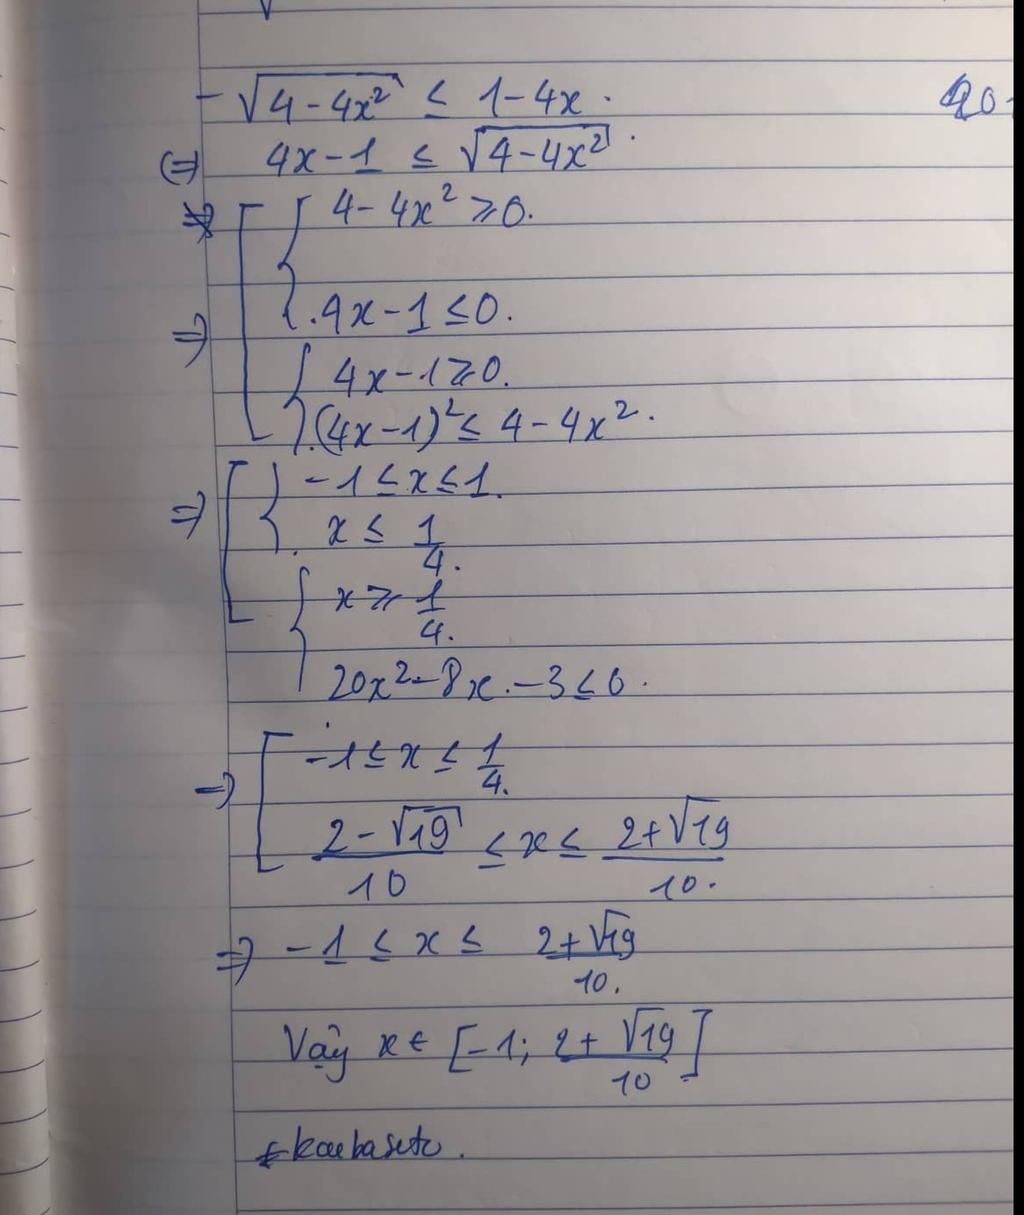 -√(4-4x²) ≤ 1-4x.
(⇒ 4x-1 ≤ √(4-4x²).
4-4x² ≥ 0.
⇒ 4x-1 ≤ 0.
4x-1 ≥ 0.
(4x-1)² ≤ 4-4x².
⇒ -1 ≤ x ≤ 1.
x ≤ 1/4.
x ≥ 1/4.
20x²-8x.-3 ≤ 0.
⇒ -1 ≤ x ≤ 1/4.
(2-√19)/10 ≤ x ≤ (2+√19)/10.
⇒ -1 ≤ x ≤ (2+√19)/10.
Vậy x ∈ [-1; (2+√19)/10]